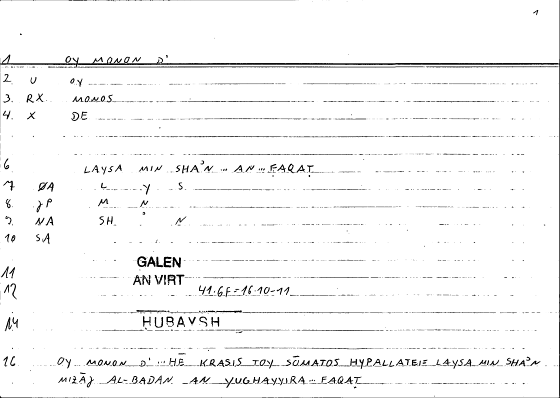 1
1 OY MONON D'
2. U OY
3. RX MONOS
4. X DE
6 LAYSA MIN SHAʾN … AN … FAQAṬ
7 ØA L Y S
8 JP M N
9. NA SH ʾ N
10 SA
11 GALEN
12 AN VIRT 41.6F=16.10-11
14 HUBAYSH
16 OY MONON D' … HĒ KRASIS TOY SŌMATOS HYPALLATEIE LAYSA MIN SHAʾN
MIZĀJ AL-BADAN AN YUGHAYYIRA … FAQAṬ